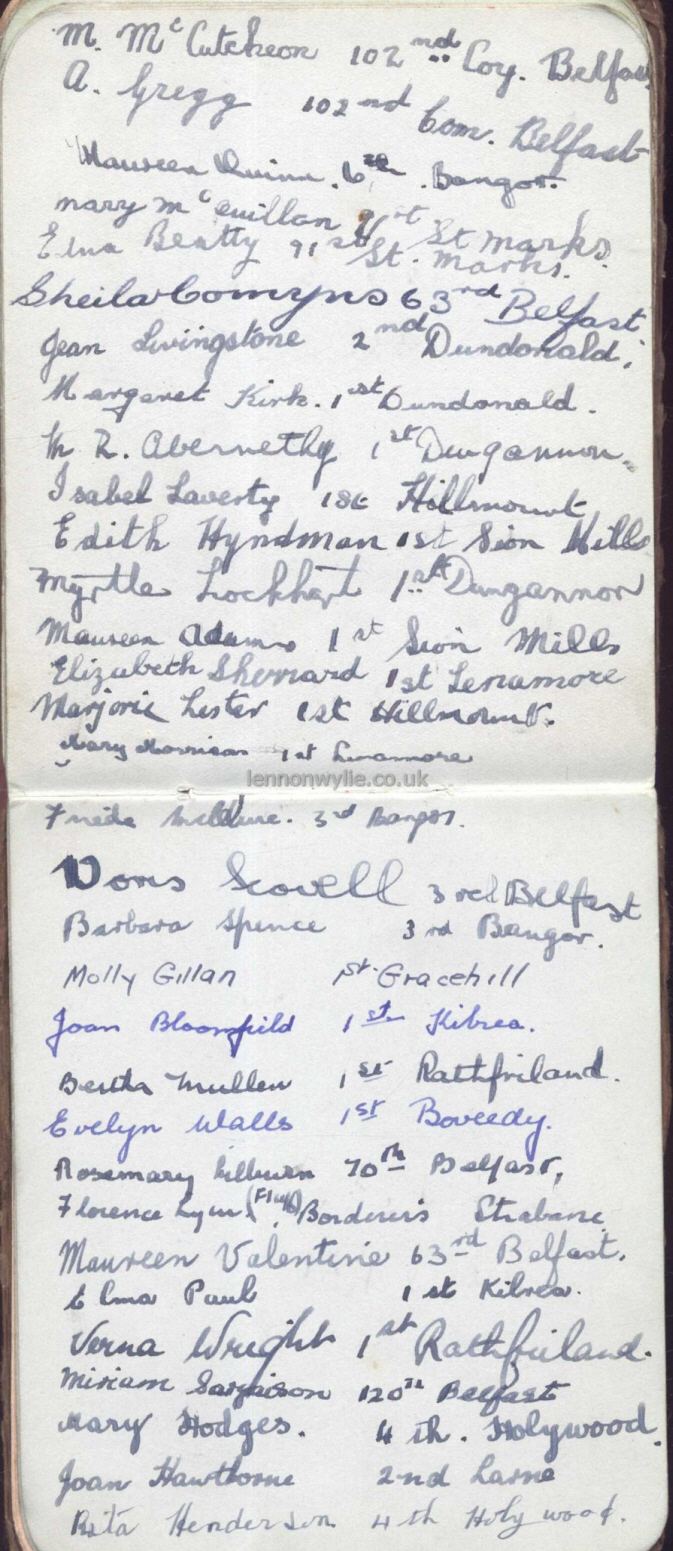 M. McCutcheon 102nd Coy. Belfast
A. Gregg 102nd Com. Belfast
Maureen Quinn. 6th. Bangor.
Mary McQuillan 91st St Marks.
Edna Beatty 91st St. Marks.
Sheila Comyns 63rd Belfast
Jean Livingstone 2nd Dundonald.
Margaret Kirk. 1st Dundonald.
M. R. Abernethy 1st Dungannon.
Isabel Laverty 1st Hillmount
Edith Hyndman 1st Sion Mills
Myrtle Lockhart 1st Dungannon
Maureen Adams 1st Sion Mills
Elizabeth Sherrard 1st Lenamore
Marjorie Lester 1st Hillmount.
Mary Morrison 1st Lenamore
lennonwylie.co.uk
Frieda 3rd Bangor.
Doris Scovell 3rd Belfast
Barbara Spence 3rd Bangor.
Molly Gillan 1st. Gracehill
Joan Bloomfield 1st Kilrea.
Mullen 1st Rathfriland.
Evelyn Walls 1st Boveedy.
Rosemary Kilburn 70th Belfast,
Florence Lynn (Fluff) Borderers Strabane
Maureen Valentine 63rd Belfast.
Elma Paul 1st Kilrea.
Verna Wright 1st Rathfriland.
Miriam Sargaison 120th Belfast
Mary Hodges. 4th. Holywood.
Joan Hawthorne 2nd Larne
Rita Henderson 4th Holywood.